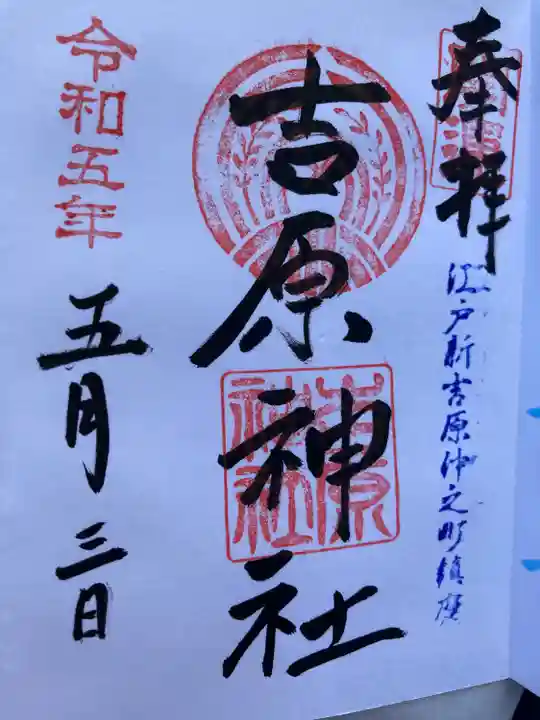 奉拝
江戸新吉原仲之町鎮座
吉原神社
吉原神社
令和五年
五月三日